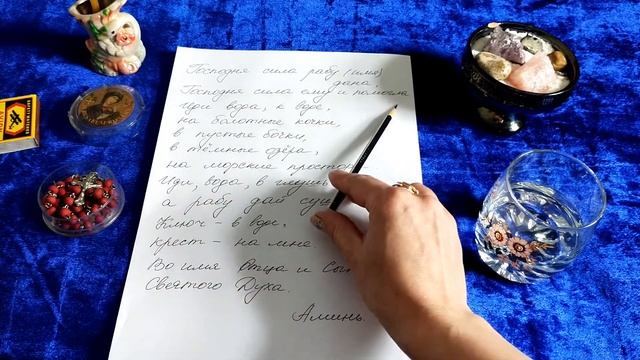 Господня сила рабу (имя)
дана,
Господня сила ему и помогла
Иди вода, к воде,
на болотные кочки,
в пустые бочки,
в тёмные озёра,
на морские простор
Иди, вода, в глушь
а рабу дай суш
Ключ – в воде,
крест – на мне.
Во имя Отца и Сы
Святого Духа.
Аминь.